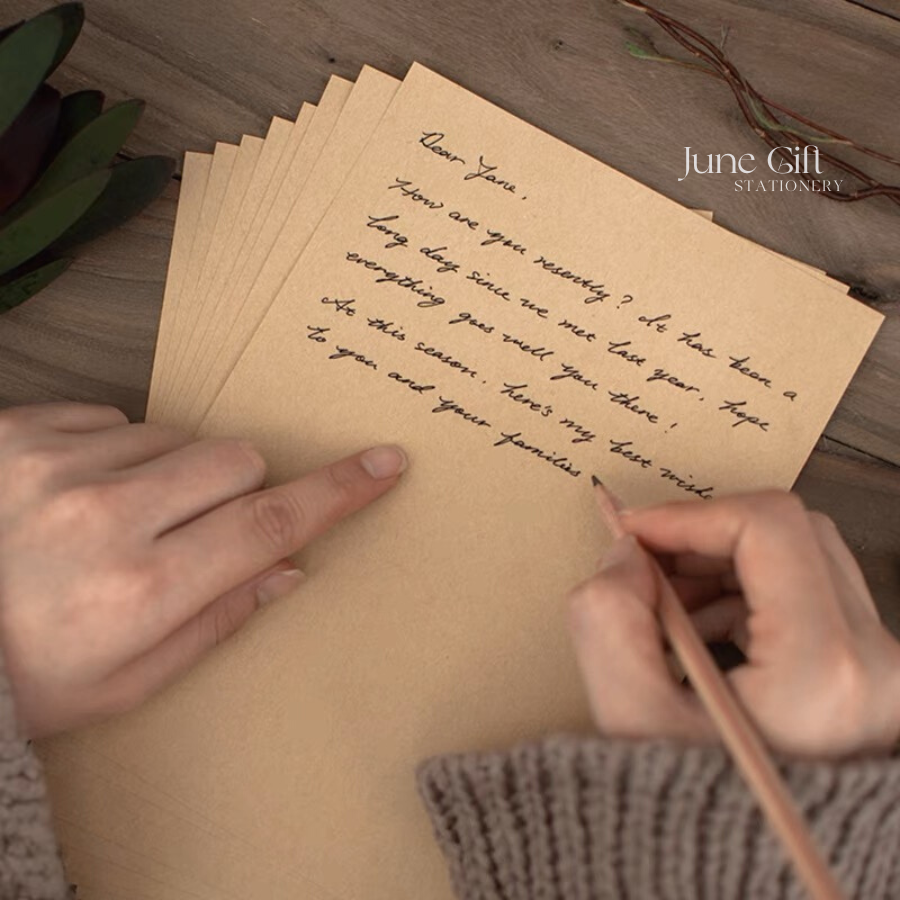 June Gift
STATIONERY
Dear Jane,
How are you resently? It has been a
long day since we met last year, hope
everything goes well you there!
At this season, here's my best wishe
to you and your families